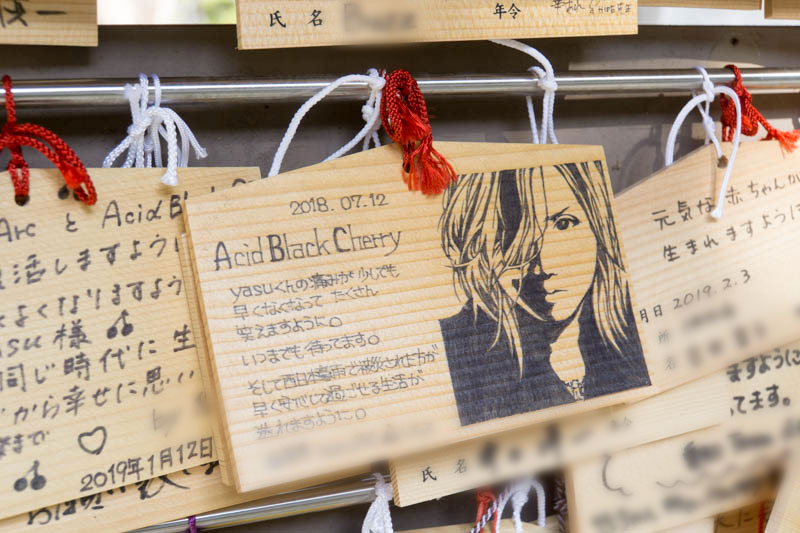 氏 名
年令
Arc と Acid Bl
活しますように
よくなりますよう
asu 様
同じ時代に 生
から幸せに思い
まで
2019年1月12日
2018.07.12
Acid Black Cherry
yasuくんの痛みが少しでも
早くなくなって たくさん
笑えますように。
いつまでも待ってます。
そして西日本豪雨で被災された方が
早く安心して過ごせる生活が
送れますように。
元気な赤ちゃんが
生まれますように
月日 2019.2.3
所
名
ますように
てます。
氏 名
年令